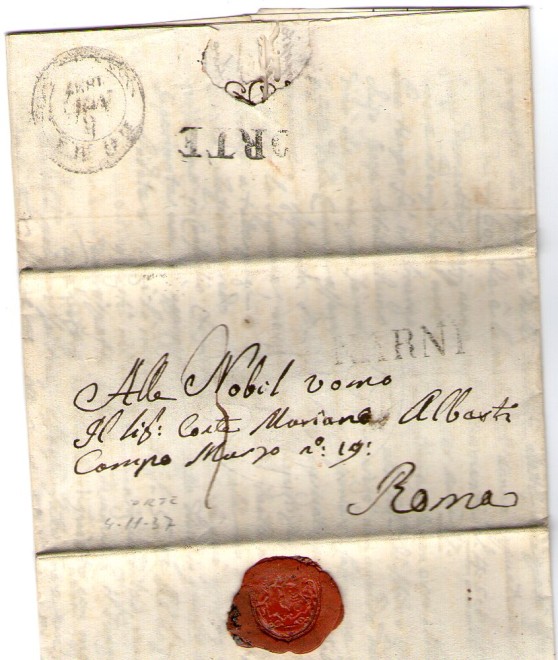 ORTE
NARNI
Alle Nobil uomo
Il Sig: Conte Mariano Alberti
Campo Marzo n.º 19:
Roma
ORTE
4-11-37